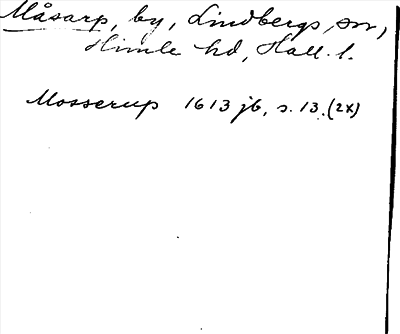 Måsarp, by, Lindbergs sn,
Himle hd, Hall. l.
Mosserup 1613 jb, s. 13. (2x)